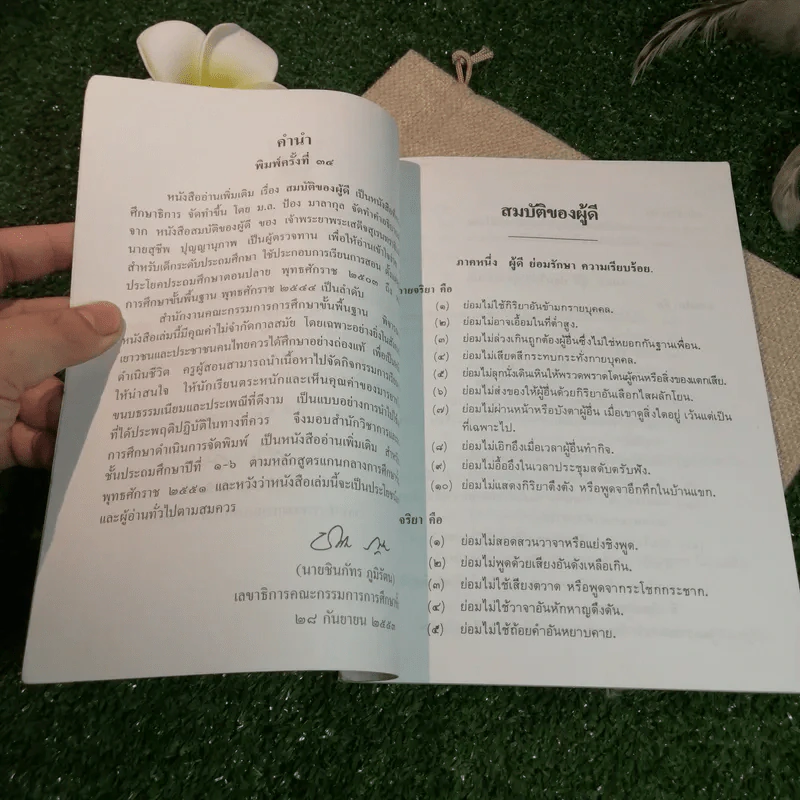 คำนำ
พิมพ์ครั้งที่ ๓๔
หนังสืออ่านเพิ่มเติม เรื่อง สมบัติของผู้ดี เป็นหนังสือ
ศึกษาธิการ จัดทำขึ้น โดย ม.ล. ป้อง มาลากุล จัดทำคำอธิบาย
จาก หนังสือสมบัติของผู้ดี ของ เจ้าพระยาพระเสด็จสุเรนทราธิบดี
นายสุชีพ ปุญญานุภาพ เป็นผู้ตรวจทาน เพื่อให้อ่านเข้าใจง่าย
สำหรับเด็กระดับประถมศึกษา ใช้ประกอบการเรียนการสอน ตั้งแต่
ประโยคประถมศึกษาตอนปลาย พุทธศักราช ๒๕๐๓ ถึง
การศึกษาขั้นพื้นฐาน พุทธศักราช ๒๕๔๔ เป็นลำดับ
สำนักงานคณะกรรมการการศึกษาขั้นพื้นฐาน
หนังสือเล่มนี้มีคุณค่าไม่จำกัดกาลสมัย โดยเฉพาะอย่างยิ่งใน
เยาวชนและประชาชนคนไทยควรได้ศึกษาอย่างถ่องแท้
ดำเนินชีวิต ครูผู้สอนสามารถนำเนื้อหาไปจัดกิจกรรมการเรียน
ให้น่าสนใจ ให้นักเรียนตระหนักและเห็นคุณค่าของมารยาท
ขนบธรรมเนียมและประเพณีที่ดีงาม เป็นแบบอย่างการนำไป
ที่ได้ประพฤติปฏิบัติในทางที่ควร จึงมอบสำนักวิชาการ
การศึกษาดำเนินการจัดพิมพ์ เป็นหนังสืออ่านเพิ่มเติม
ชั้นประถมศึกษาปีที่ ๑-๖ ตามหลักสูตรแกนกลางการศึกษา
พุทธศักราช ๒๕๕๑ และหวังว่าหนังสือเล่มนี้จะเป็นประโยชน์
และผู้อ่านทั่วไปตามสมควร
(นายชินภัทร ภูมิรัตน)
เลขาธิการคณะกรรมการการศึกษา
๒๘ กันยายน ๒๕๕๓
สมบัติของผู้ดี
ภาคหนึ่ง ผู้ดี ย่อมรักษา ความเรียบร้อย.
กายจริยา คือ
(๑) ย่อมไม่ใช้กิริยาอันข้ามกรายบุคคล.
(๒) ย่อมไม่อาจเอื้อมในที่ต่ำสูง.
(๓) ย่อมไม่ล่วงเกินถูกต้องผู้อื่นซึ่งไม่ใช่หยอกกันฐานเพื่อน.
(๔) ย่อมไม่เสียดสีกระทบกระทั่งกายบุคคล.
(๕) ย่อมไม่ลุกนั่งเดินเหินให้พรวดพราดโดนผู้คนหรือสิ่งของแตกเสีย.
(๖) ย่อมไม่ส่งของให้ผู้อื่นด้วยกิริยาอันเสือกไสผลักโยน.
(๗) ย่อมไม่ผ่านหน้าหรือบังตาผู้อื่น เมื่อเขาดูสิ่งใดอยู่ เว้นแต่เป็น
ที่เฉพาะไป.
(๘) ย่อมไม่เอิกอึงเมื่อเวลาผู้อื่นทำกิจ.
(๙) ย่อมไม่อื้ออึงในเวลาประชุมสดับตรับฟัง.
(๑๐) ย่อมไม่แสดงกิริยาตึงตัง หรือพูดจาอึกทึกในบ้านแขก.
จริยา คือ
(๑) ย่อมไม่สอดสวนวาจาหรือแย่งชิงพูด.
(๒) ย่อมไม่พูดด้วยเสียงอันดังเหลือเกิน.
(๓) ย่อมไม่ใช้เสียงตวาด หรือพูดจากระโชกกระชาก.
(๔) ย่อมไม่ใช้วาจาอันหักหาญดึงดัน.
(๕) ย่อมไม่ใช้ถ้อยคำอันหยาบคาย.